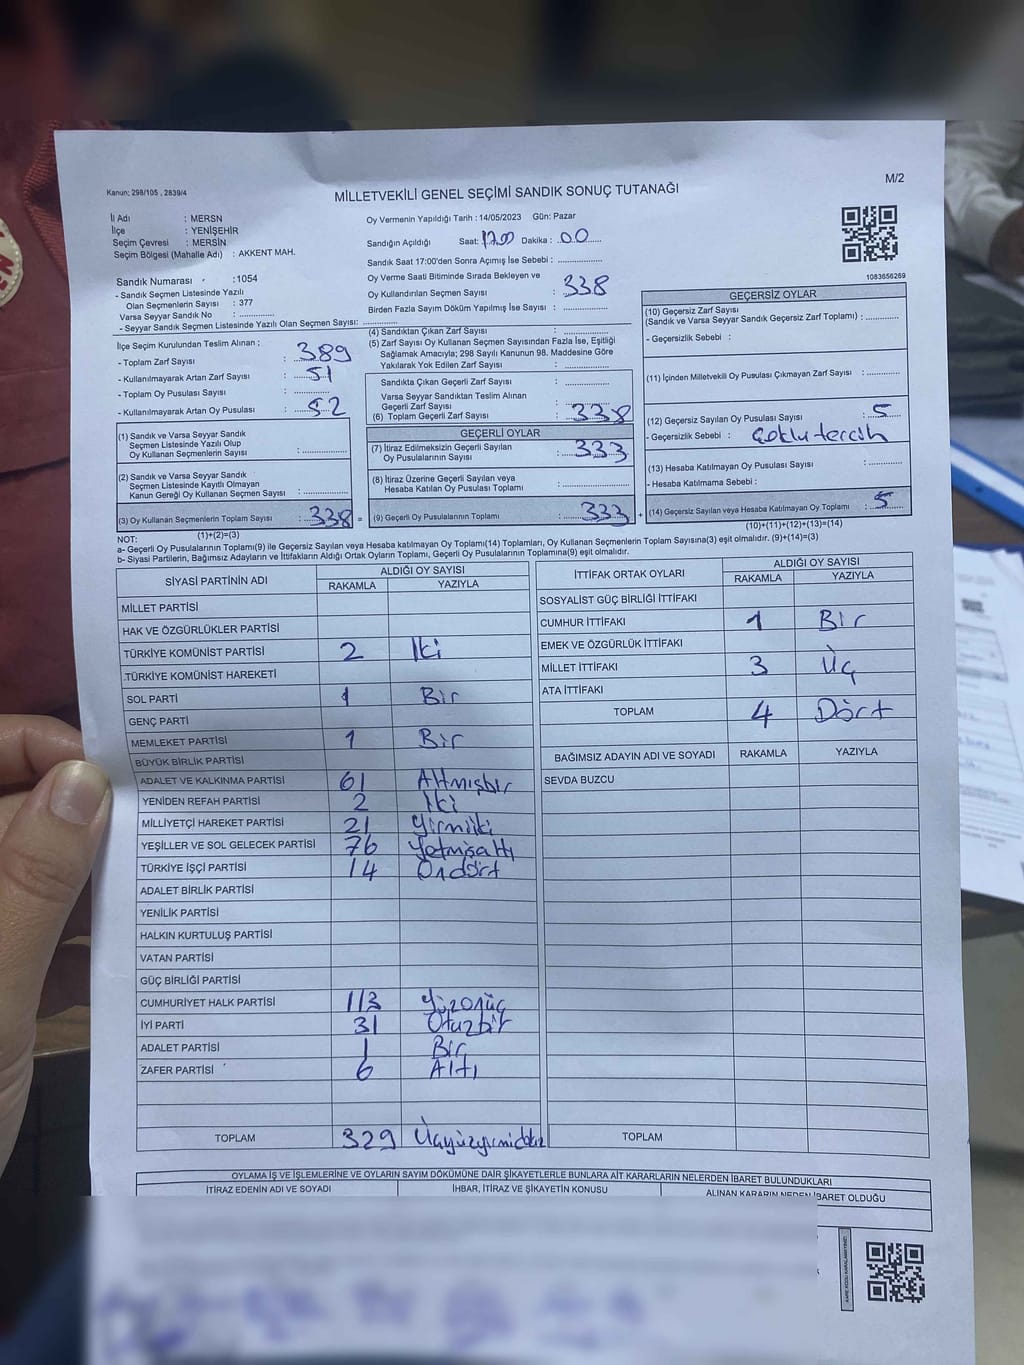 Kanun; 298/105 , 2839/4
M/2
MİLLETVEKİLİ GENEL SEÇİMİ SANDIK SONUÇ TUTANAĞI
İl Adı : MERSN
İlçe : YENİŞEHİR
Seçim Çevresi : MERSİN
Seçim Bölgesi (Mahalle Adı) : AKKENT MAH.
Oy Vermenin Yapıldığı Tarih : 14/05/2023 Gün: Pazar
Sandığın Açıldığı Saat: 17.00 Dakika : 00
Sandık Saat 17:00'den Sonra Açımış İse Sebebi :
Sandık Numarası : 1054
- Sandık Seçmen Listesinde Yazılı
Olan Seçmenlerin Sayısı : 377
Varsa Seyyar Sandık No :
- Seyyar Sandık Seçmen Listesinde Yazılı Olan Seçmen Sayısı:
Oy Verme Saati Bitiminde Sırada Bekleyen ve
Oy Kullandırılan Seçmen Sayısı : 338
Birden Fazla Sayım Döküm Yapılmış İse Sayısı :
1083656269
İlçe Seçim Kurulundan Teslim Alınan ;
- Toplam Zarf Sayısı : 389
- Kullanılmayarak Artan Zarf Sayısı : 51
- Toplam Oy Pusulası Sayısı :
- Kullanılmayarak Artan Oy Pusulası : 52
(1) Sandık ve Varsa Seyyar Sandık
Seçmen Listesinde Yazılı Olup
Oy Kullanan Seçmenlerin Sayısı :
(2) Sandık ve Varsa Seyyar Sandık
Seçmen Listesinde Kayıtlı Olmayan
Kanun Gereği Oy Kullanan Seçmen Sayısı :
(3) Oy Kullanan Seçmenlerin Toplam Sayısı : 338 =
(1)+(2)=(3)
(4) Sandıktan Çıkan Zarf Sayısı :
(5) Zarf Sayısı Oy Kullanan Seçmen Sayısından Fazla İse, Eşitliği
Sağlamak Amacıyla; 298 Sayılı Kanunun 98. Maddesine Göre
Yakılarak Yok Edilen Zarf Sayısı :
Sandıkta Çıkan Geçerli Zarf Sayısı :
Varsa Seyyar Sandıktan Teslim Alınan
Geçerli Zarf Sayısı :
(6) Toplam Geçerli Zarf Sayısı : 338
GEÇERLİ OYLAR
(7) İtiraz Edilmeksizin Geçerli Sayılan
Oy Pusulalarının Sayısı : 333
(8) İtiraz Üzerine Geçerli Sayılan veya
Hesaba Katılan Oy Pusulası Toplamı :
(9) Geçerli Oy Pusulalarının Toplamı : 333 +
GEÇERSİZ OYLAR
(10) Geçersiz Zarf Sayısı
(Sandık ve Varsa Seyyar Sandık Geçersiz Zarf Toplamı) :
- Geçersizlik Sebebi :
(11) İçinden Milletvekili Oy Pusulası Çıkmayan Zarf Sayısı :
(12) Geçersiz Sayılan Oy Pusulası Sayısı : 5
- Geçersizlik Sebebi : Çoklu tercih
(13) Hesaba Katılmayan Oy Pusulası Sayısı :
- Hesaba Katılmama Sebebi :
(14) Geçersiz Sayılan veya Hesaba Katılmayan Oy Toplamı : 5
(10)+(11)+(12)+(13)=(14)
NOT:
a- Geçerli Oy Pusulasının Toplamı(9) ile Geçersiz Sayılan veya Hesaba katılmayan Oy Toplamı(14) Toplamları, Oy Kullanan Seçmenlerin Toplam Sayısına(3) eşit olmalıdır. (9)+(14)=(3)
b- Siyasi Partilerin, Bağımsız Adayların ve İttifakların Aldığı Ortak Oyların Toplamı, Geçerli Oy Pusulalarının Toplamına(9) eşit olmalıdır.
SİYASİ PARTİNİN ADI ALDIĞI OY SAYISI
RAKAMLA YAZIYLA
MİLLET PARTİSİ
HAK VE ÖZGÜRLÜKLER PARTİSİ
TÜRKİYE KOMÜNİST PARTİSİ 2 İki
TÜRKİYE KOMÜNİST HAREKETİ
SOL PARTİ 1 Bir
GENÇ PARTİ
MEMLEKET PARTİSİ 1 Bir
BÜYÜK BİRLİK PARTİSİ
ADALET VE KALKINMA PARTİSİ 61 Altmışbir
YENİDEN REFAH PARTİSİ 2 İki
MİLLİYETÇİ HAREKET PARTİSİ 21
YEŞİLLER VE SOL GELECEK PARTİSİ 76 Yetmişaltı
TÜRKİYE İŞÇİ PARTİSİ 14 Ondört
ADALET BİRLİK PARTİSİ
YENİLİK PARTİSİ
HALKIN KURTULUŞ PARTİSİ
VATAN PARTİSİ
GÜÇ BİRLİĞİ PARTİSİ
CUMHURİYET HALK PARTİSİ 113 Yüzonüç
İYİ PARTİ 31 Otuzbir
ADALET PARTİSİ 1 Bir
ZAFER PARTİSİ 6 Altı
TOPLAM 329
İTTİFAK ORTAK OYLARI ALDIĞI OY SAYISI
RAKAMLA YAZIYLA
SOSYALİST GÜÇ BİRLİĞİ İTTİFAKI
CUMHUR İTTİFAKI 1 Bir
EMEK VE ÖZGÜRLÜK İTTİFAKI
MİLLET İTTİFAKI 3 Üç
ATA İTTİFAKI
TOPLAM 4 Dört
BAĞIMSIZ ADAYIN ADI VE SOYADI RAKAMLA YAZIYLA
SEVDA BUZCU
TOPLAM
OYLAMA İŞ VE İŞLEMLERİNE VE OYLARIN SAYIM DÖKÜMÜNE DAİR ŞİKAYETLERLE BUNLARA AİT KARARLARIN NELERDEN İBARET BULUNDUKLARI
İTİRAZ EDENİN ADI VE SOYADI İHBAR, İTİRAZ VE ŞİKAYETİN KONUSU ALINAN KARARIN NEDEN İBARET OLDUĞU